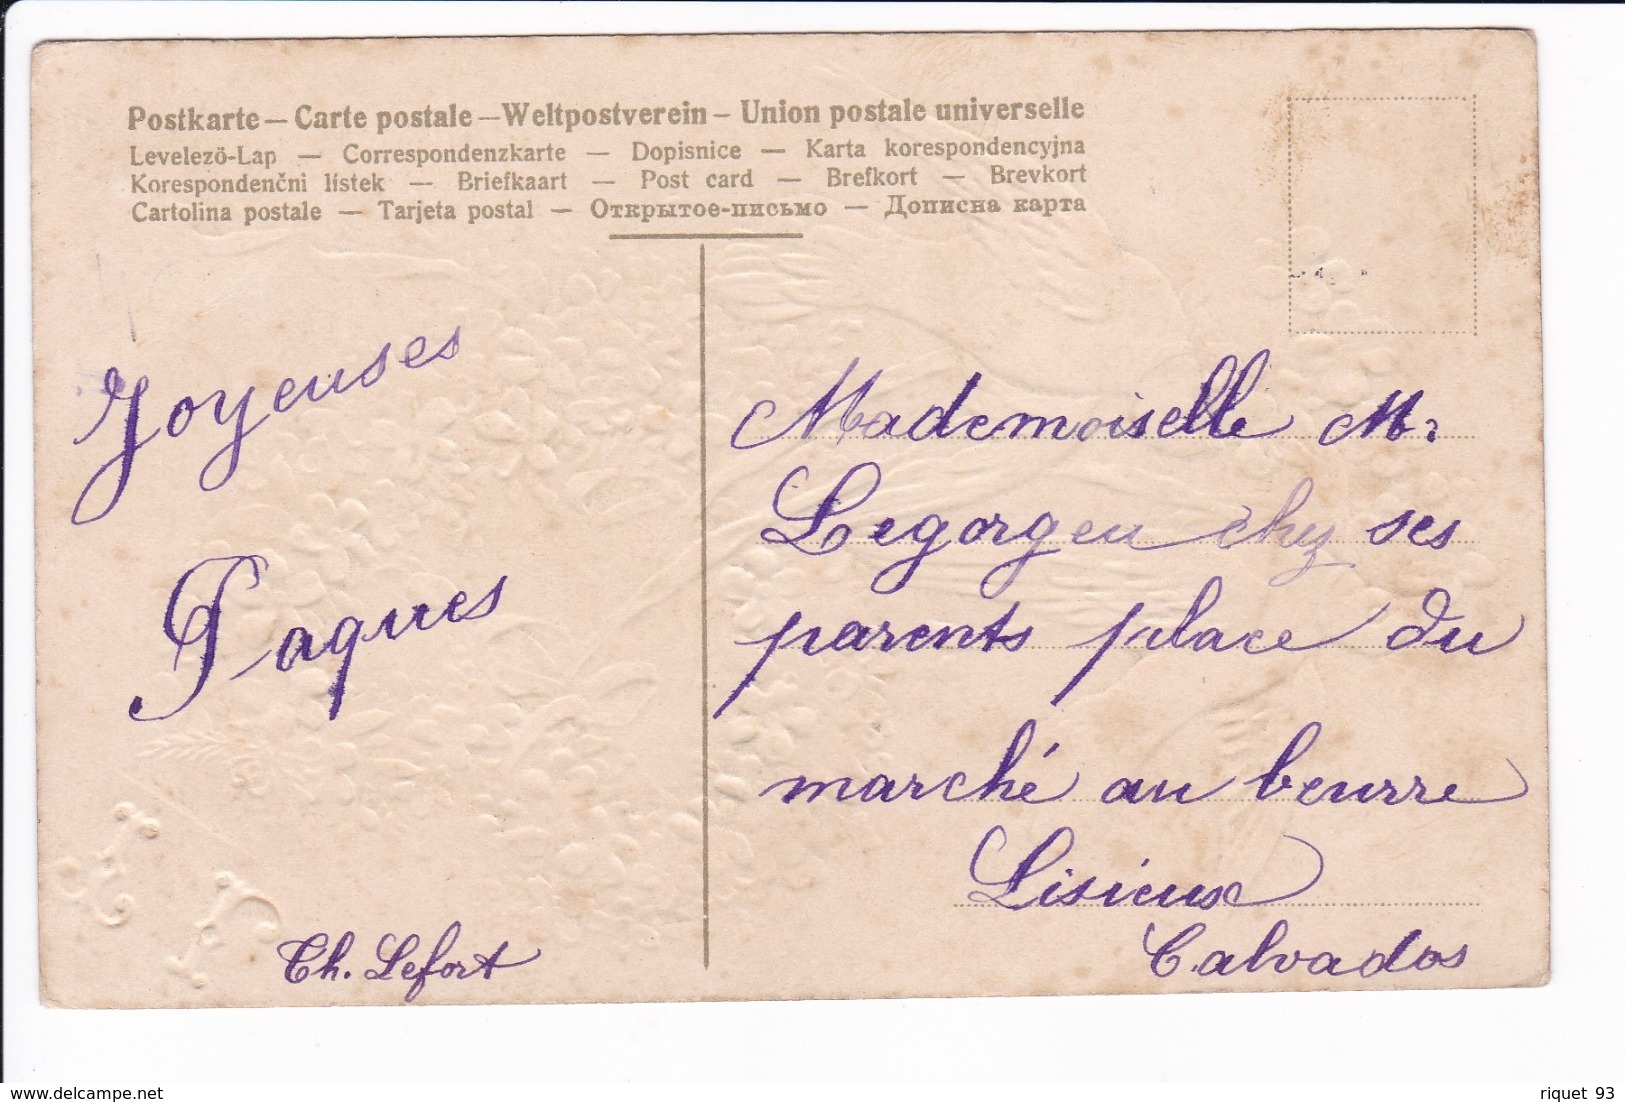 Postkarte — Carte postale — Weltpostverein — Union postale universelle
Levelezö-Lap — Correspondenzkarte — Dopisnice — Karta korespondencyjna
Korespondenčni lístek — Briefkaart — Post card — Brefkort — Brevkort
Cartolina postale — Tarjeta postal — Открытое-письмо — Дописна карта
Joyeuses
Paques
Th. Lefort
Mademoiselle M.
Legorgeu chez ses
parents place du
marché au beurre
Lisieux
Calvados
www.delcampe.net
riquet 93